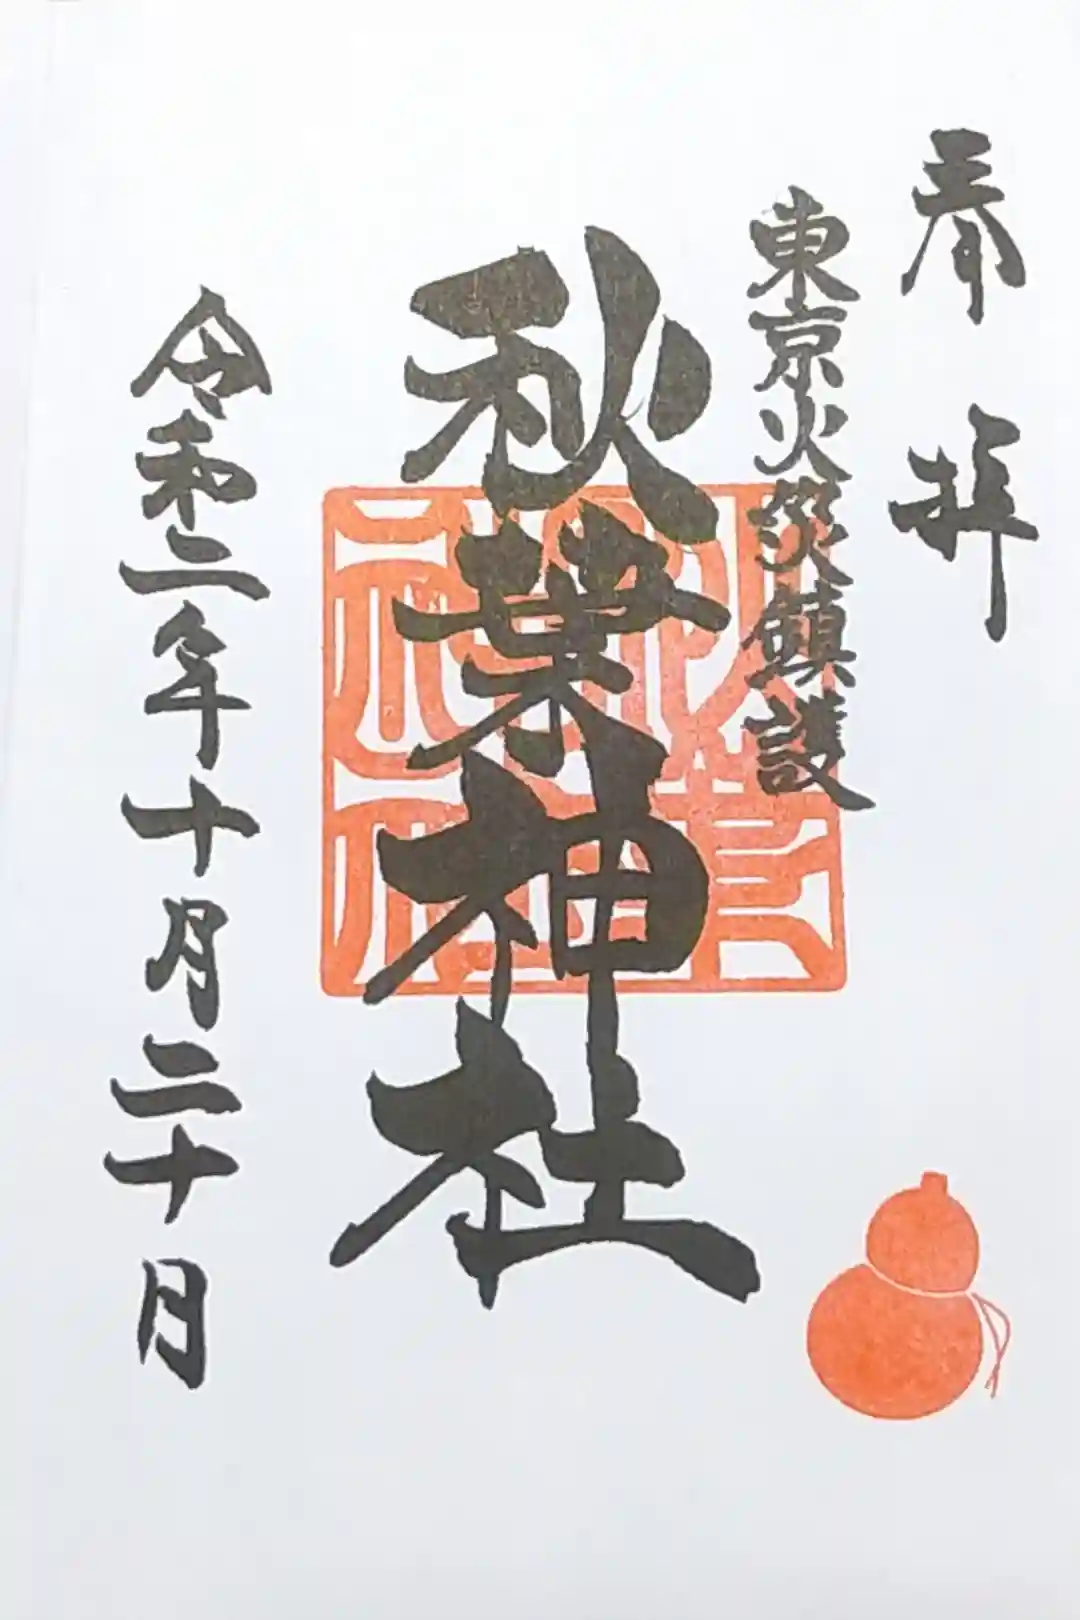 奉拝
東京火災鎮護
秋葉神社
秋葉
神社
令和二年十月二十日